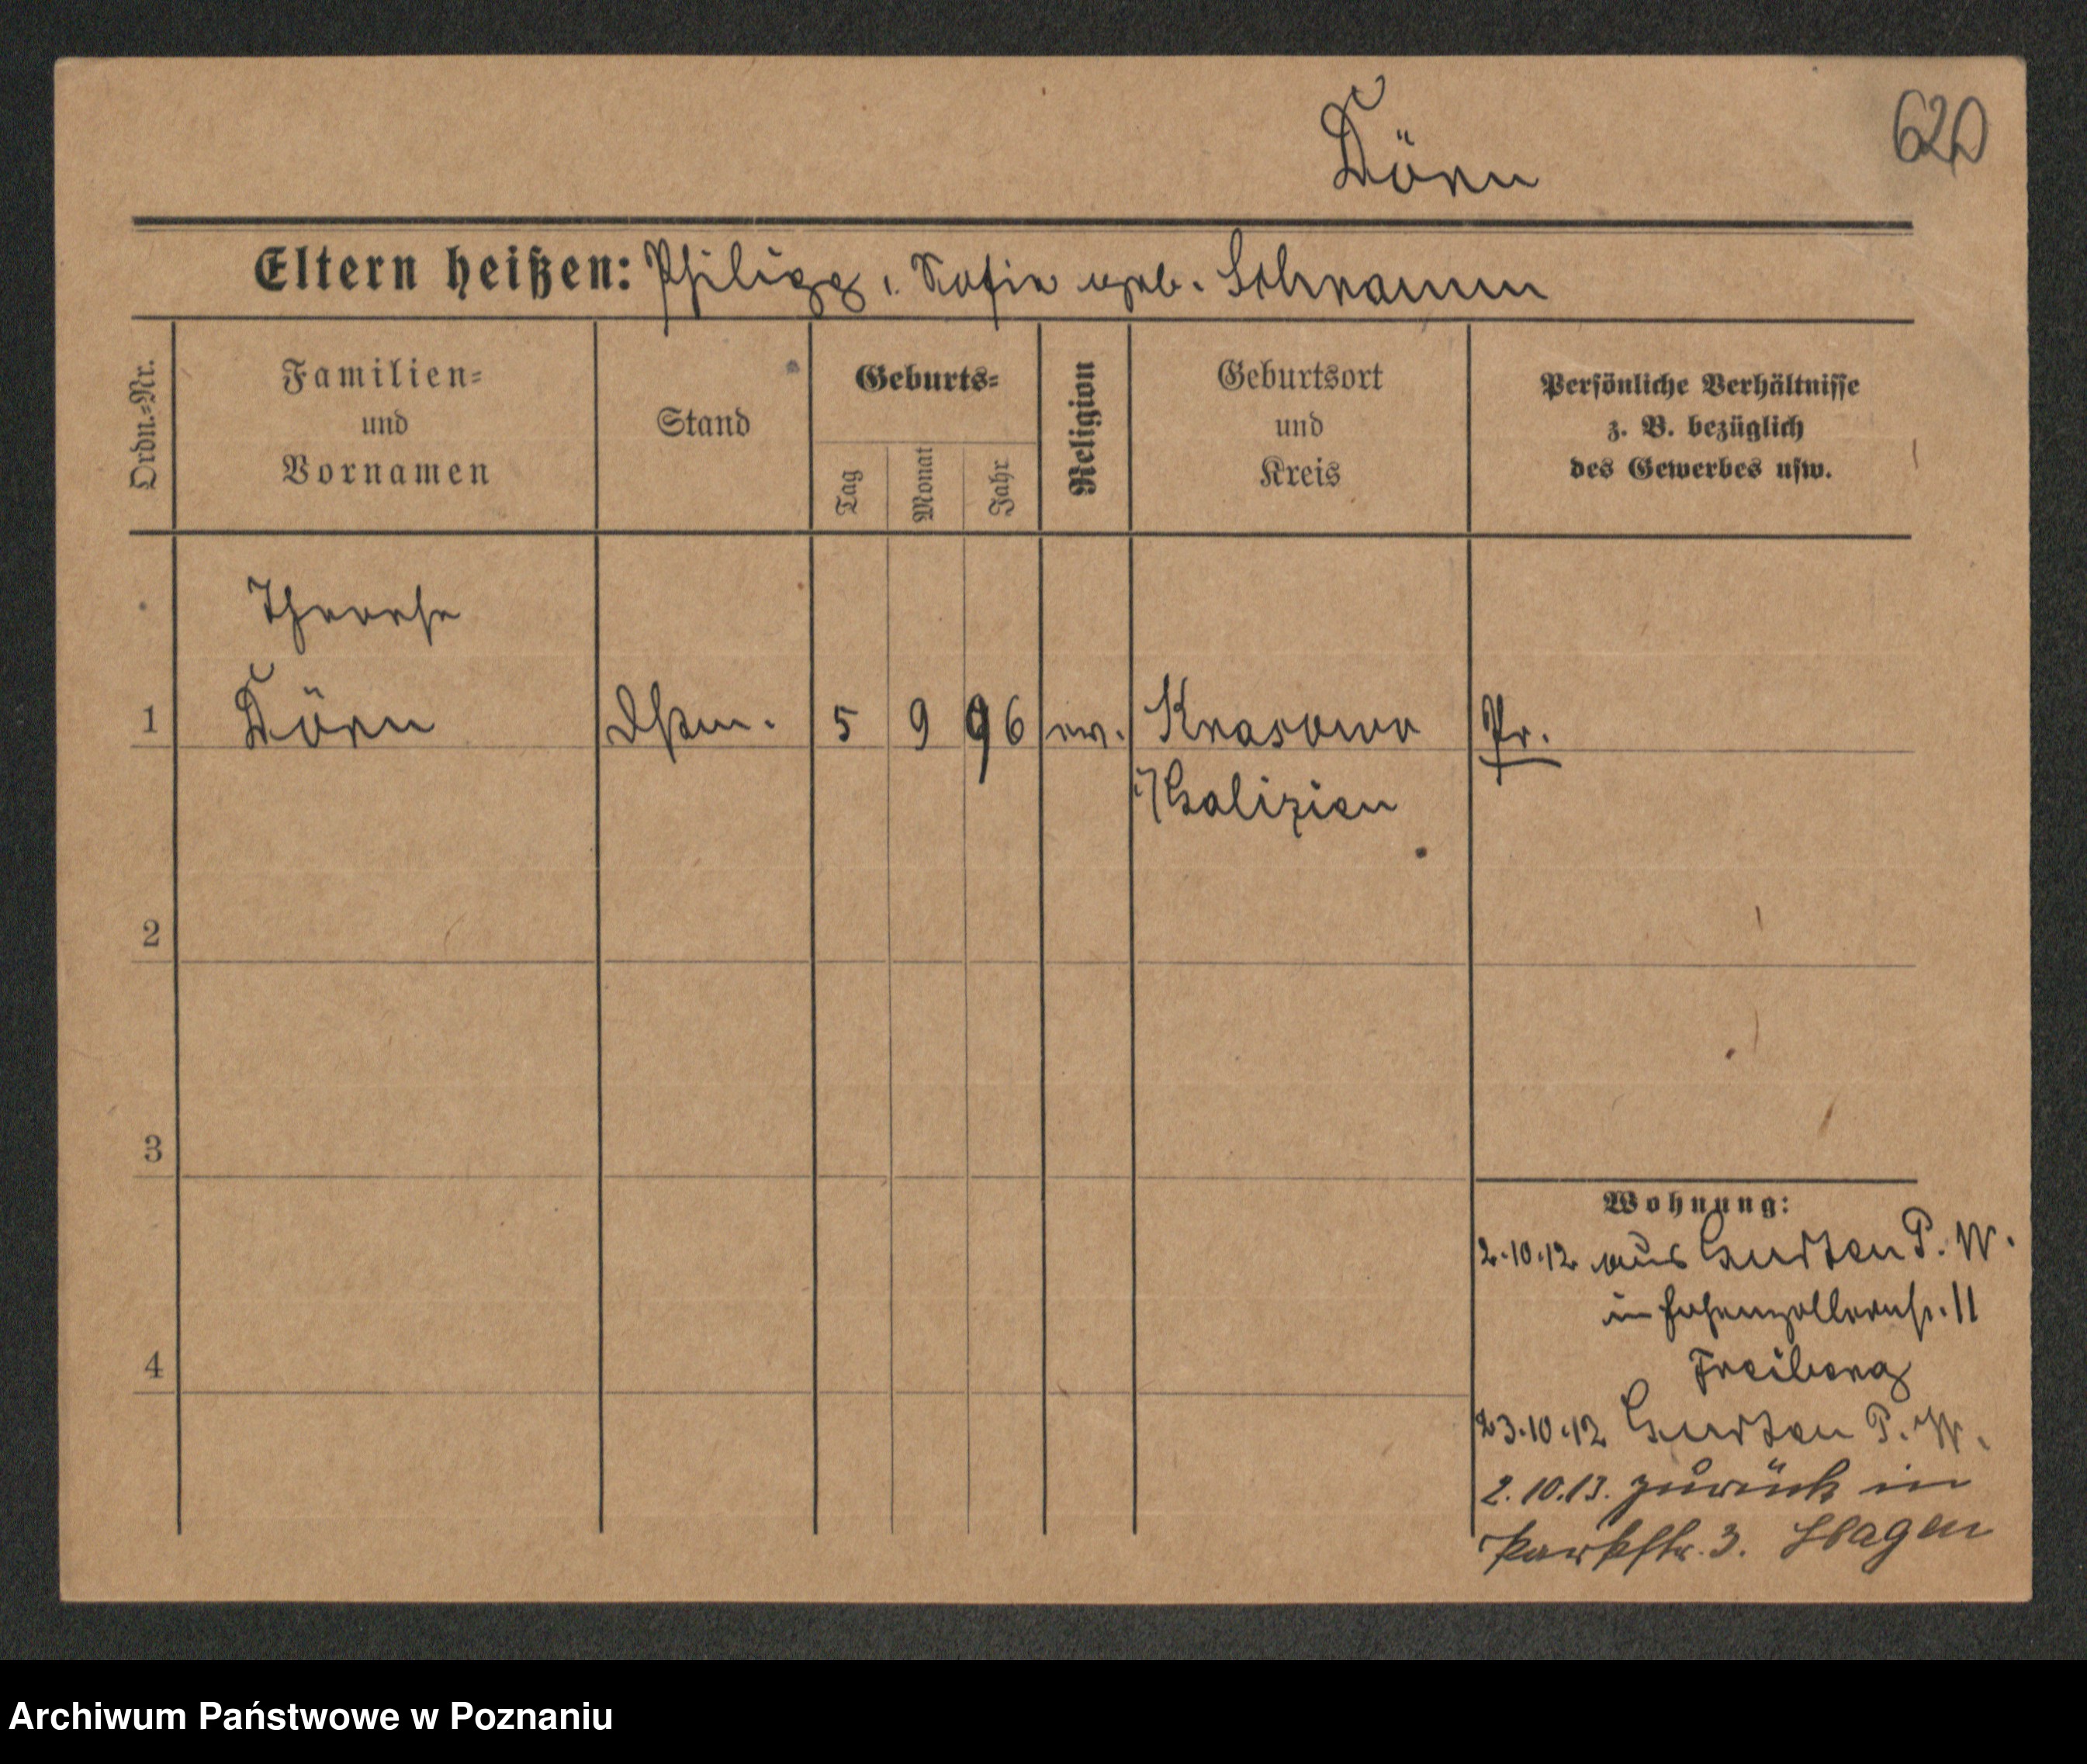 Dörn
620
Eltern heißen: Philipp u. Sofie geb. Schramm
Ordn.-Nr.
Familien-
und
Vornamen
Stand
Geburts-
Tag
Monat
Jahr
Religion
Geburtsort
und
Kreis
Persönliche Verhältnisse
z. B. bezüglich
des Gewerbes usw.
Therese
1 Dörn Dstm. 5 9 96 ev. Krasowo Pr.
i/Galizien
2
3
4
Wohnung:
2.10.12 aus Gurten P. W.
in Hohenzollernstr. 11
Freiberg
23.10.12 Gurten P. W.
2.10.13. zurück in
Parkstr. 3. Hagen
Archiwum Państwowe w Poznaniu